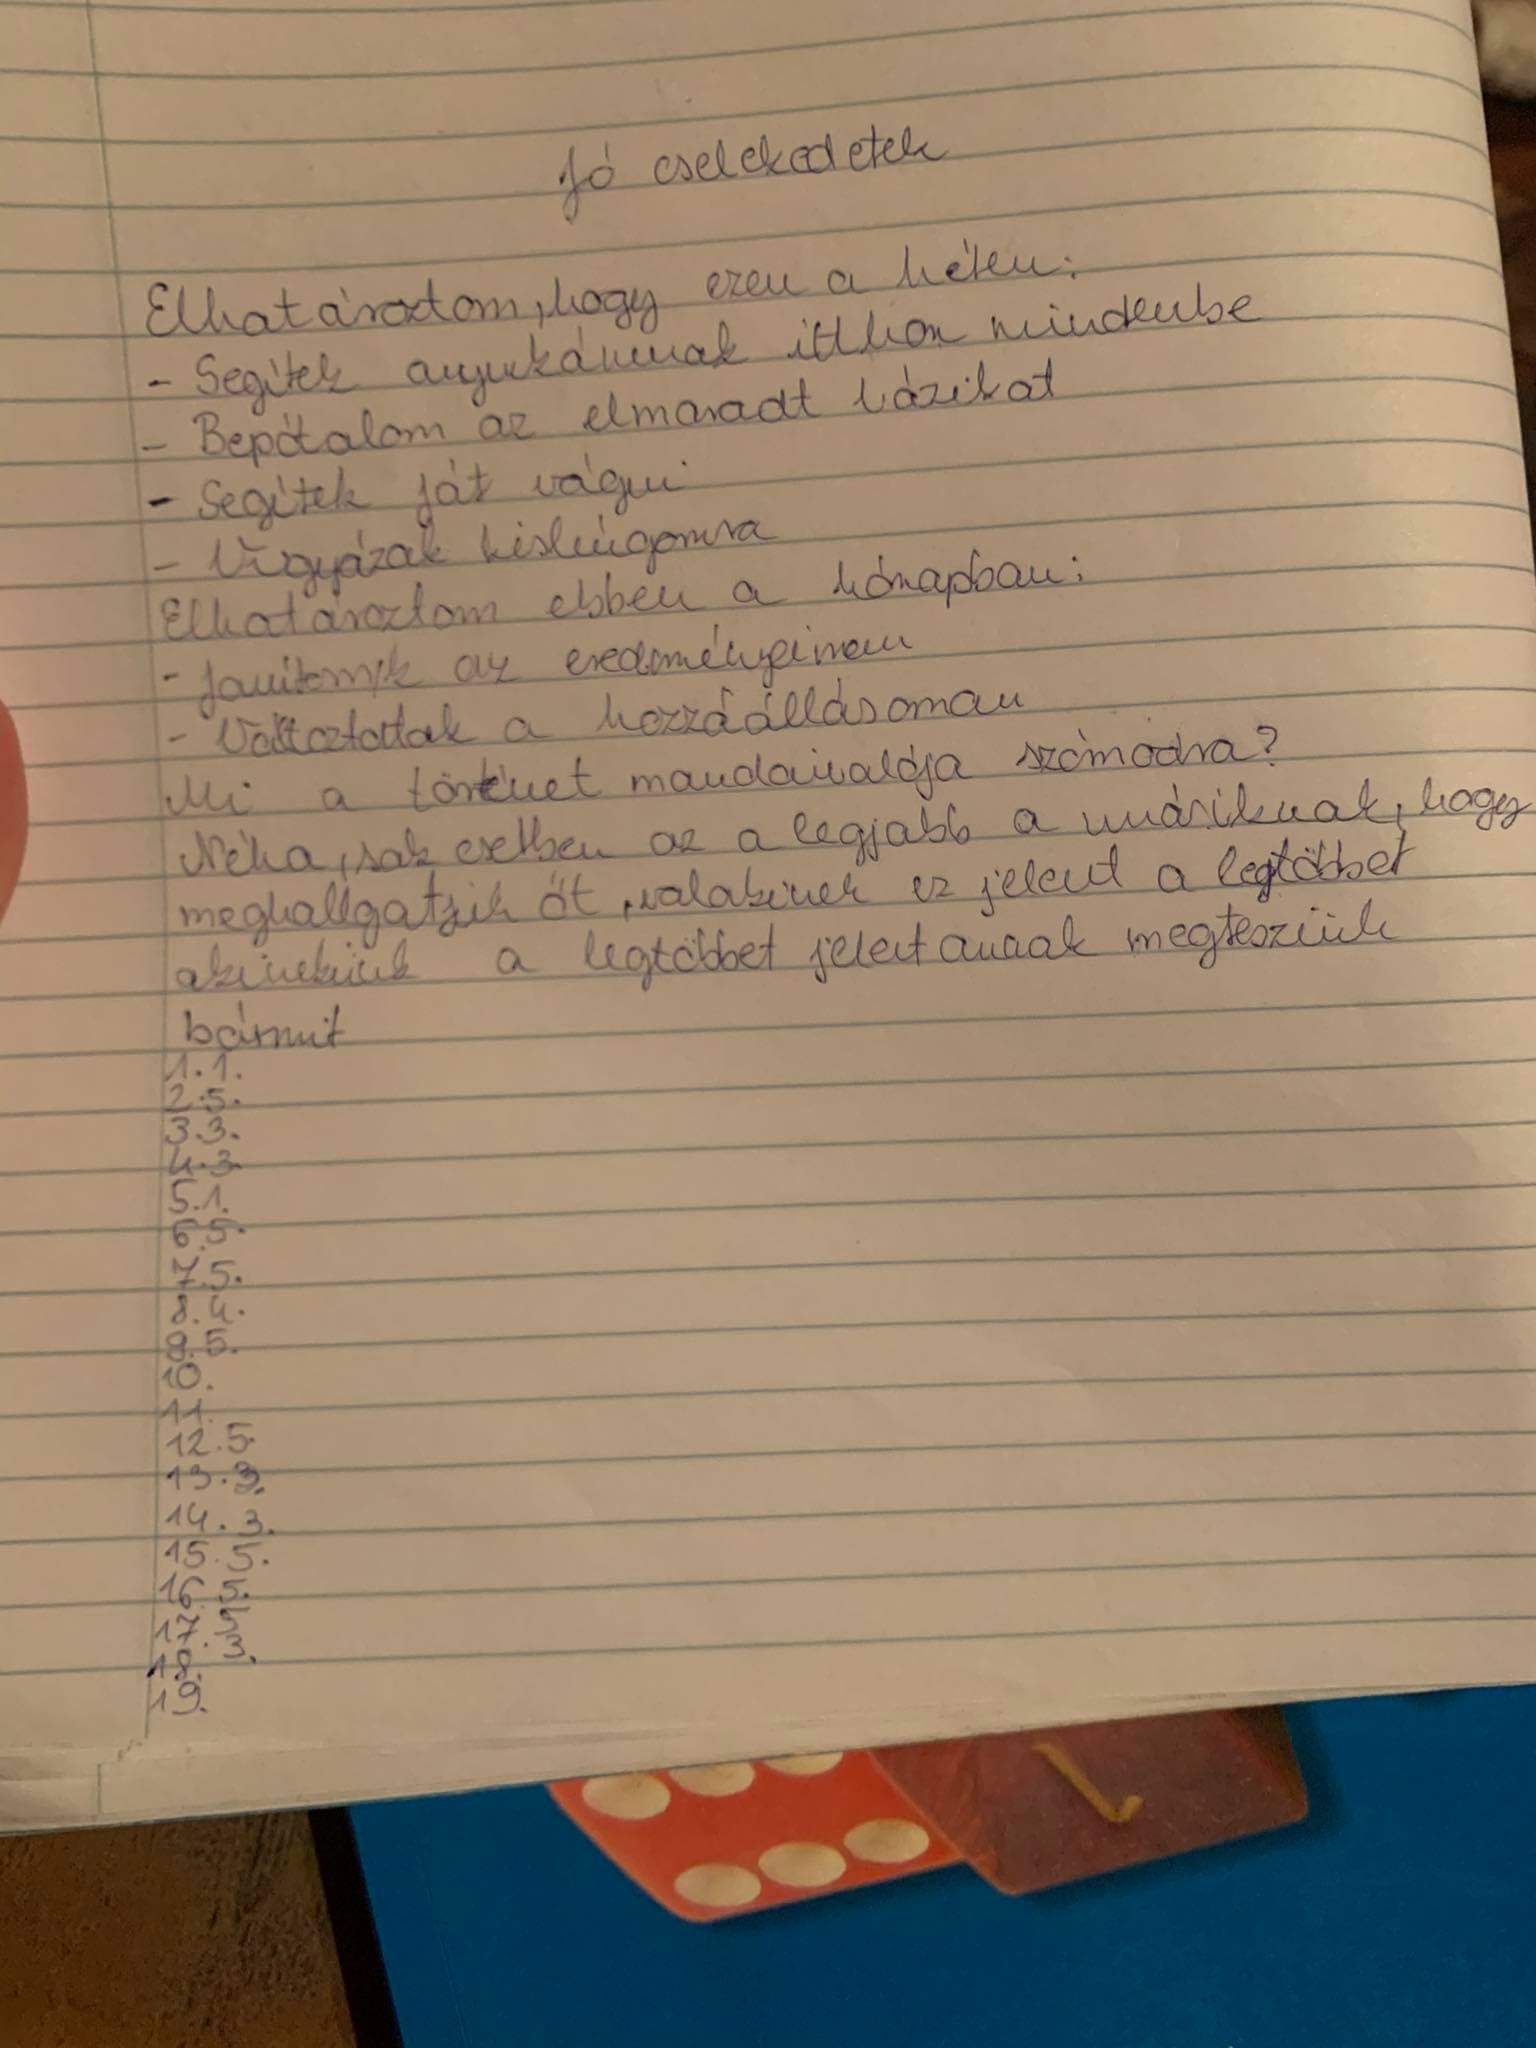 Jó cselekedetek
Elhatároztom, hogy ezen a héten:
- Segítek anyukámnak itthon mindenbe
- Bepótalom az elmaradt házikat
- Segítek fát vágni
- Vigyázak kishúgomra
Elhatároztom ebben a hónapban:
- Javítom/k az eredményeimen
- Változtatok a hozzáállásoman
Mi a történet mandanivalója számodra?
Néha, sok esetben az a legjabb a másiknak, hogy
meghallgatjuk őt, valakinek ez jelent a legtöbbet
akineknk a legtöbbet jelent annak megteszünk
bármit
1.1.
2.5.
3.3.
4.3.
5.1.
6.5.
7.5.
8.4.
9.5.
10.
11.
12.5.
13.3.
14.3.
15.5.
16.5.
17.3.
18.
19.